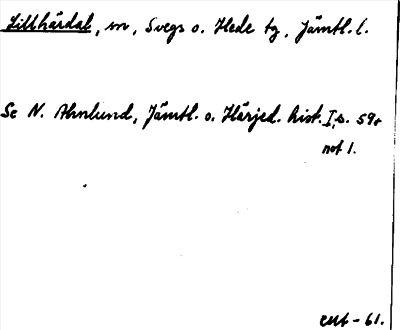 Lillhärdal, sn, Svegs o. Hede tg, Jämtl. l.
Se N. Ahnlund, Jämtl. o. Härjed. hist. I, s. 59 +
not 1.
- 61.